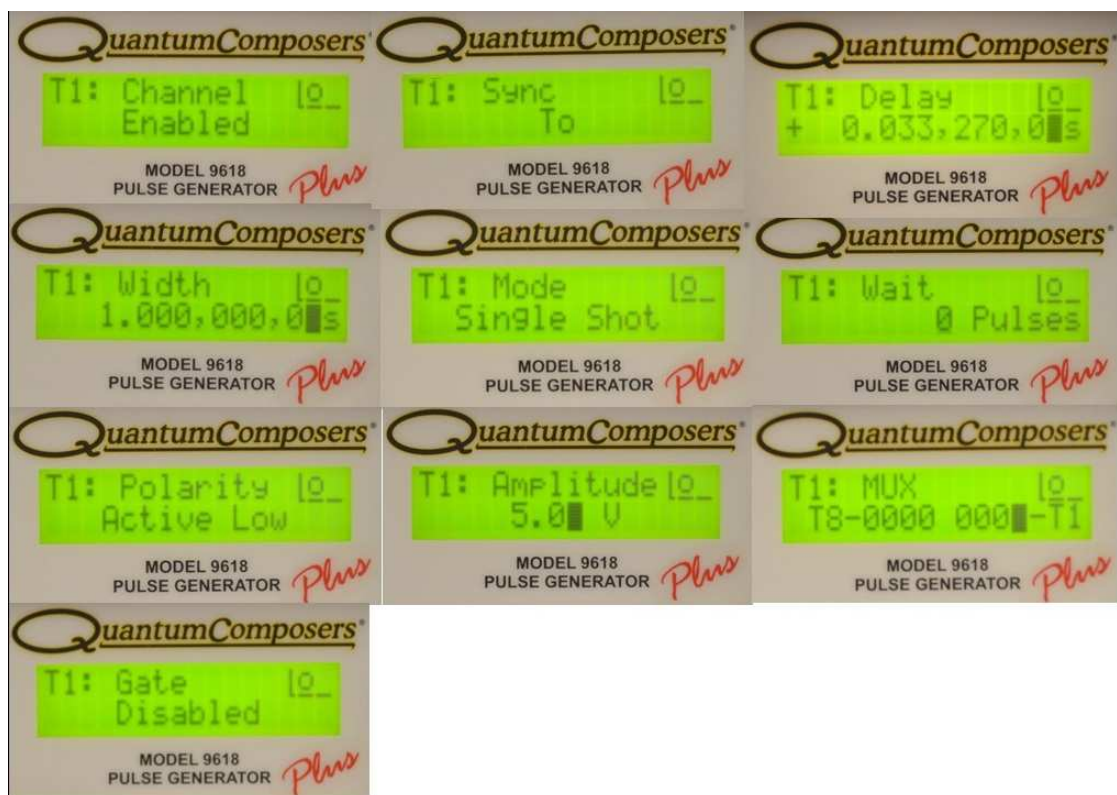 QuantumComposers
T1: Channel
Enabled
MODEL 9618
PULSE GENERATOR Plus
QuantumComposers
T1: Sync
To
MODEL 9618
PULSE GENERATOR Plus
QuantumComposers
T1: Delay
+ 0.033,270,0 s
MODEL 9618
PULSE GENERATOR Plus
QuantumComposers
T1: Width
1.000,000,0 s
MODEL 9618
PULSE GENERATOR Plus
QuantumComposers
T1: Mode
Single Shot
MODEL 9618
PULSE GENERATOR Plus
QuantumComposers
T1: Wait
0 Pulses
MODEL 9618
PULSE GENERATOR Plus
QuantumComposers
T1: Polarity
Active Low
MODEL 9618
PULSE GENERATOR Plus
QuantumComposers
T1: Amplitude
5.0 V
MODEL 9618
PULSE GENERATOR Plus
QuantumComposers
T1: MUX
T8-0000 000 -T1
MODEL 9618
PULSE GENERATOR Plus
QuantumComposers
T1: Gate
Disabled
MODEL 9618
PULSE GENERATOR Plus